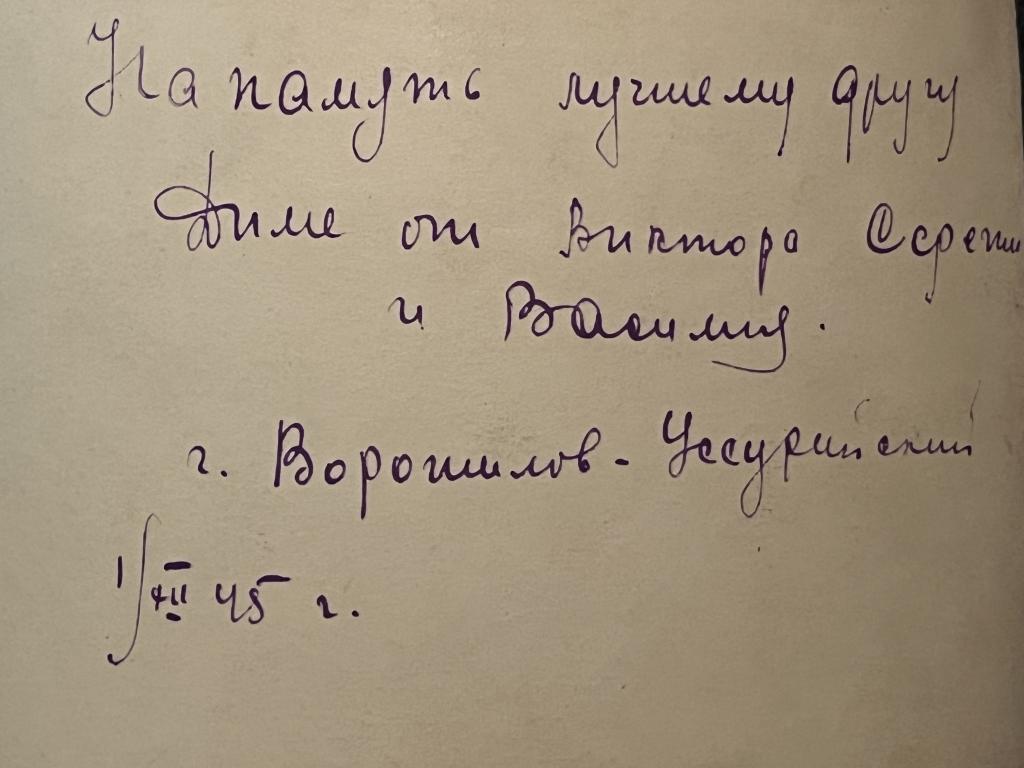 На память лучшему другу
Диме от Виктора Сережи
и Василия.
г. Ворошилов - Уссурийский
1/XII 45 г.